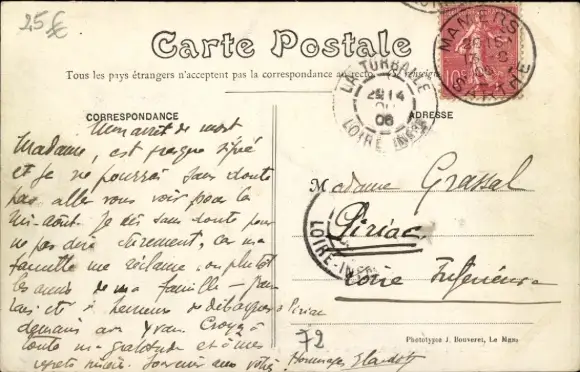 25€
Carte Postale
Tous les pays étrangers n'acceptent pas la correspondance au recto
MAMERS
SARTHE
LA TURBALLE
14
06
LOIRE INFRE
CORRESPONDANCE
ADRESSE
Mon arrêt de mort
Madame, est presque signé
et je ne pourrai sans doute
pas aller vous voir pour la
mi-août. Je dis sans doute pour
ne pas dire sûrement, car ma
famille me réclame ou plutôt
les amis de ma famille
heureux de
demain Croyez à
toute ma gratitude et à mes
regrets Souvenir aux vôtres
Hommages
Madame Grassal
Piriac
Loire Inférieure
LOIRE-INFRE
72
Phototypie J. Bouveret, Le Mans